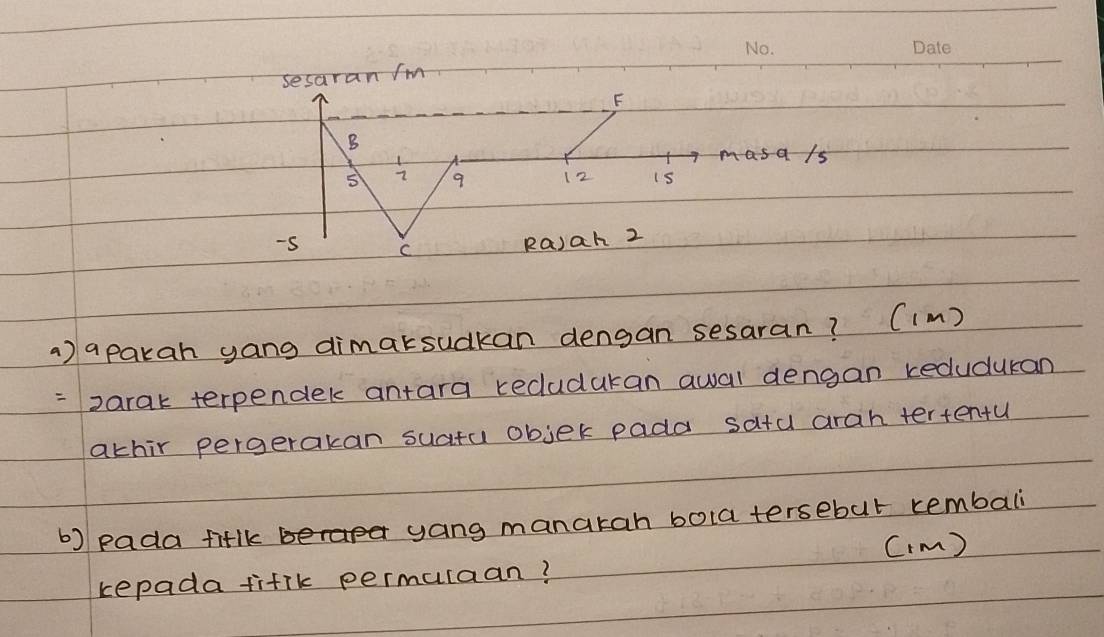 No. Date
sesaran /m
F
B
masa /s
5 7 9 12 15
-5 C Rajah 2
a) apakah yang dimaksudkan dengan sesaran? (1m)
= Jarak terpendek antara kedudukan awal dengan kedudukan
akhir pergerakan suatu objek pada satu arah tertentu
b) pada titik berapa yang manakah bola tersebut kembali
kepada titik permulaan? (1m)